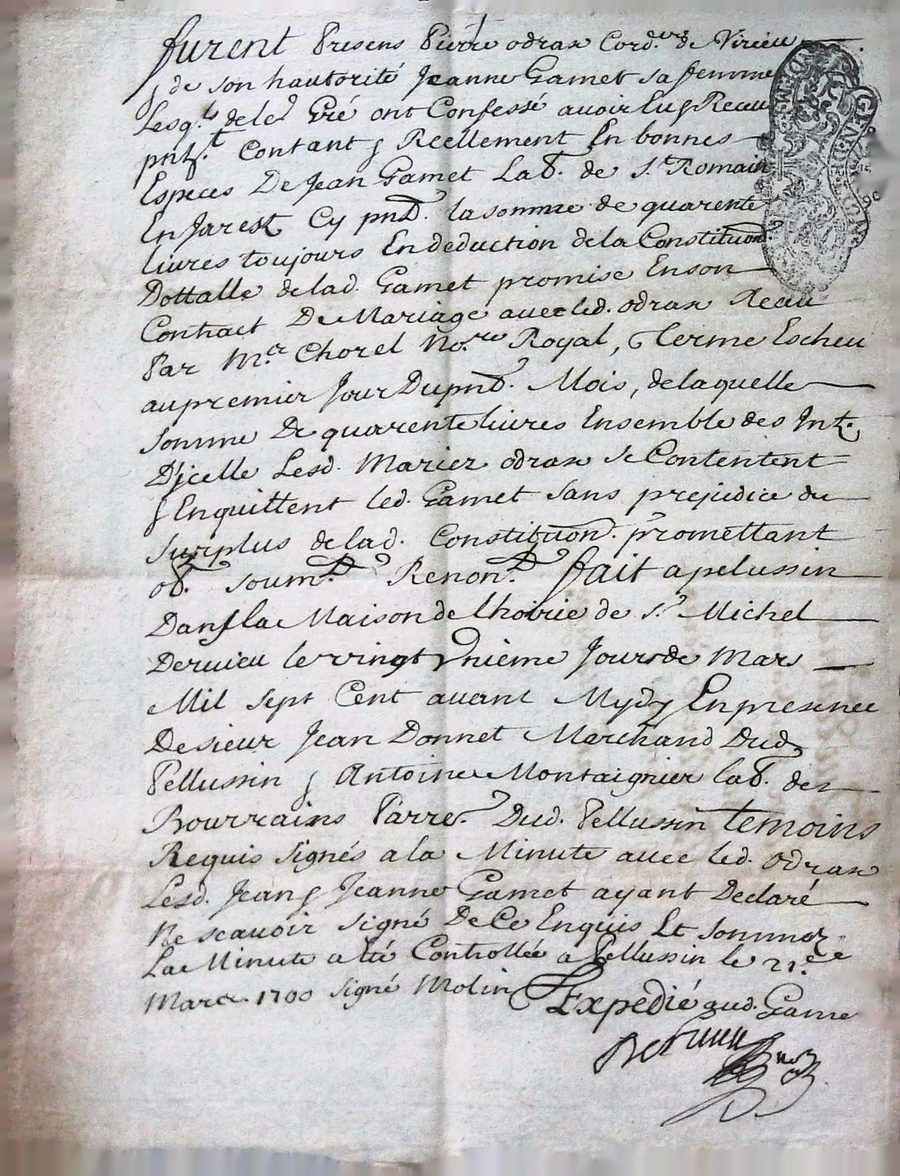 furent Presens Pierre odrax Cord.er de Virieu
& de son hautorité Jeanne Gamet sa femme
Lesq.ls de leur Gré ont Confessé avoir Eu & Receu
pnt.t Contant & Reellement En bonnes
Especes De Jean Gamet Lab. de S.t Romain
En Jarest Cy pnt. la somme de quarente
livres toujours En deduction de la Constituon.
Dottalle de lad. Gamet promise En son
Contract De Mariage avec led. odrax Receu
Par M.re Chorel No.re Royal, & terme Escheu
au premier Jour Du pnt. Mois, de laquelle
somme De quarente livres Ensemble des Int.
D'jcelle Lesd. Mariez odrax se Contentent
& Enquittent led. Gamet sans prejudice du
surplus de lad. Constituon. promettant
ob. soum. Renon. fait a pelussin
Dans la Maison de lhoirie de S.r Michel
Dervieu le vingt Vnieme Jour de Mars
Mil sept Cent avant Mydy En presence
De sieur Jean Donnet Marchand Dud.
Pellussin & Antoine Montaignier lab. des
Bourrains Parre. Dud. Pellussin temoins
Requis signés a la Minute avec led. odrax
Lesd. Jean & Jeanne Gamet ayant Declaré
Ne scavoir signé De Ce Enquis Et sommez
La Minute a eté Controllée a Pellussin le 21.e
Mars 1700 signé Molin Expedié aud. Game